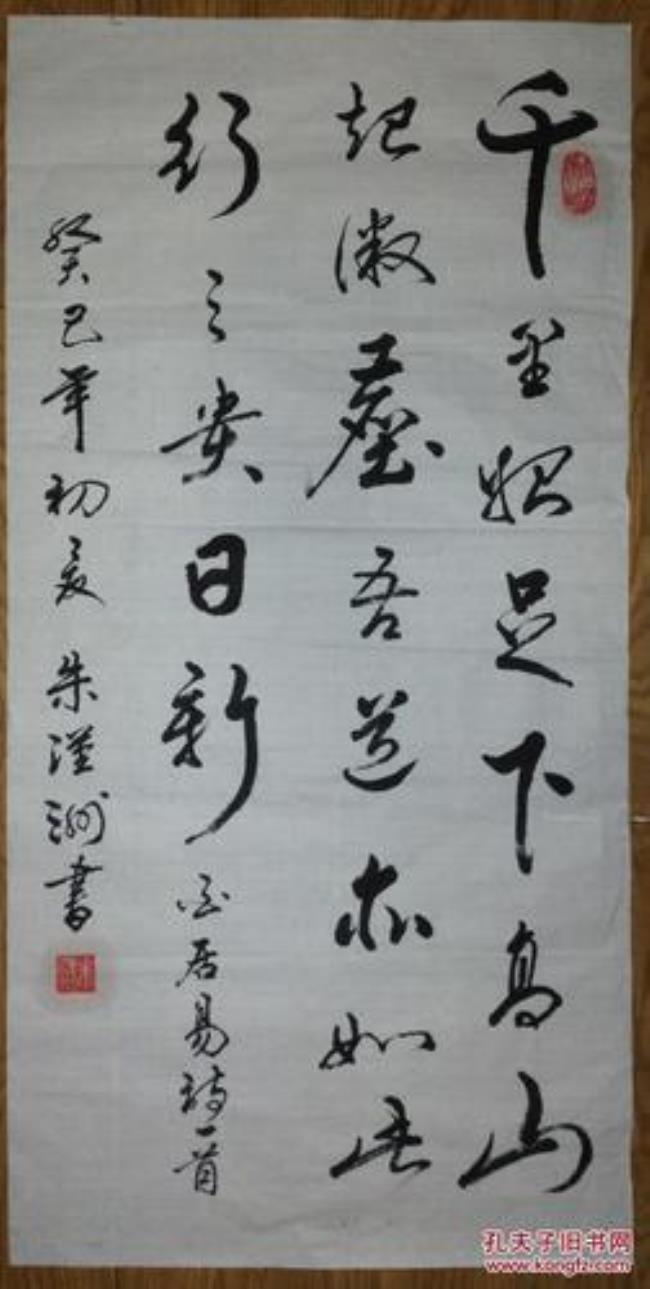 千里始足下高山
起微尘吾道亦如此
行之贵日新 白居易诗一首
癸巳年初夏 朱汉洲書
孔夫子旧书网
www.kongfz.com